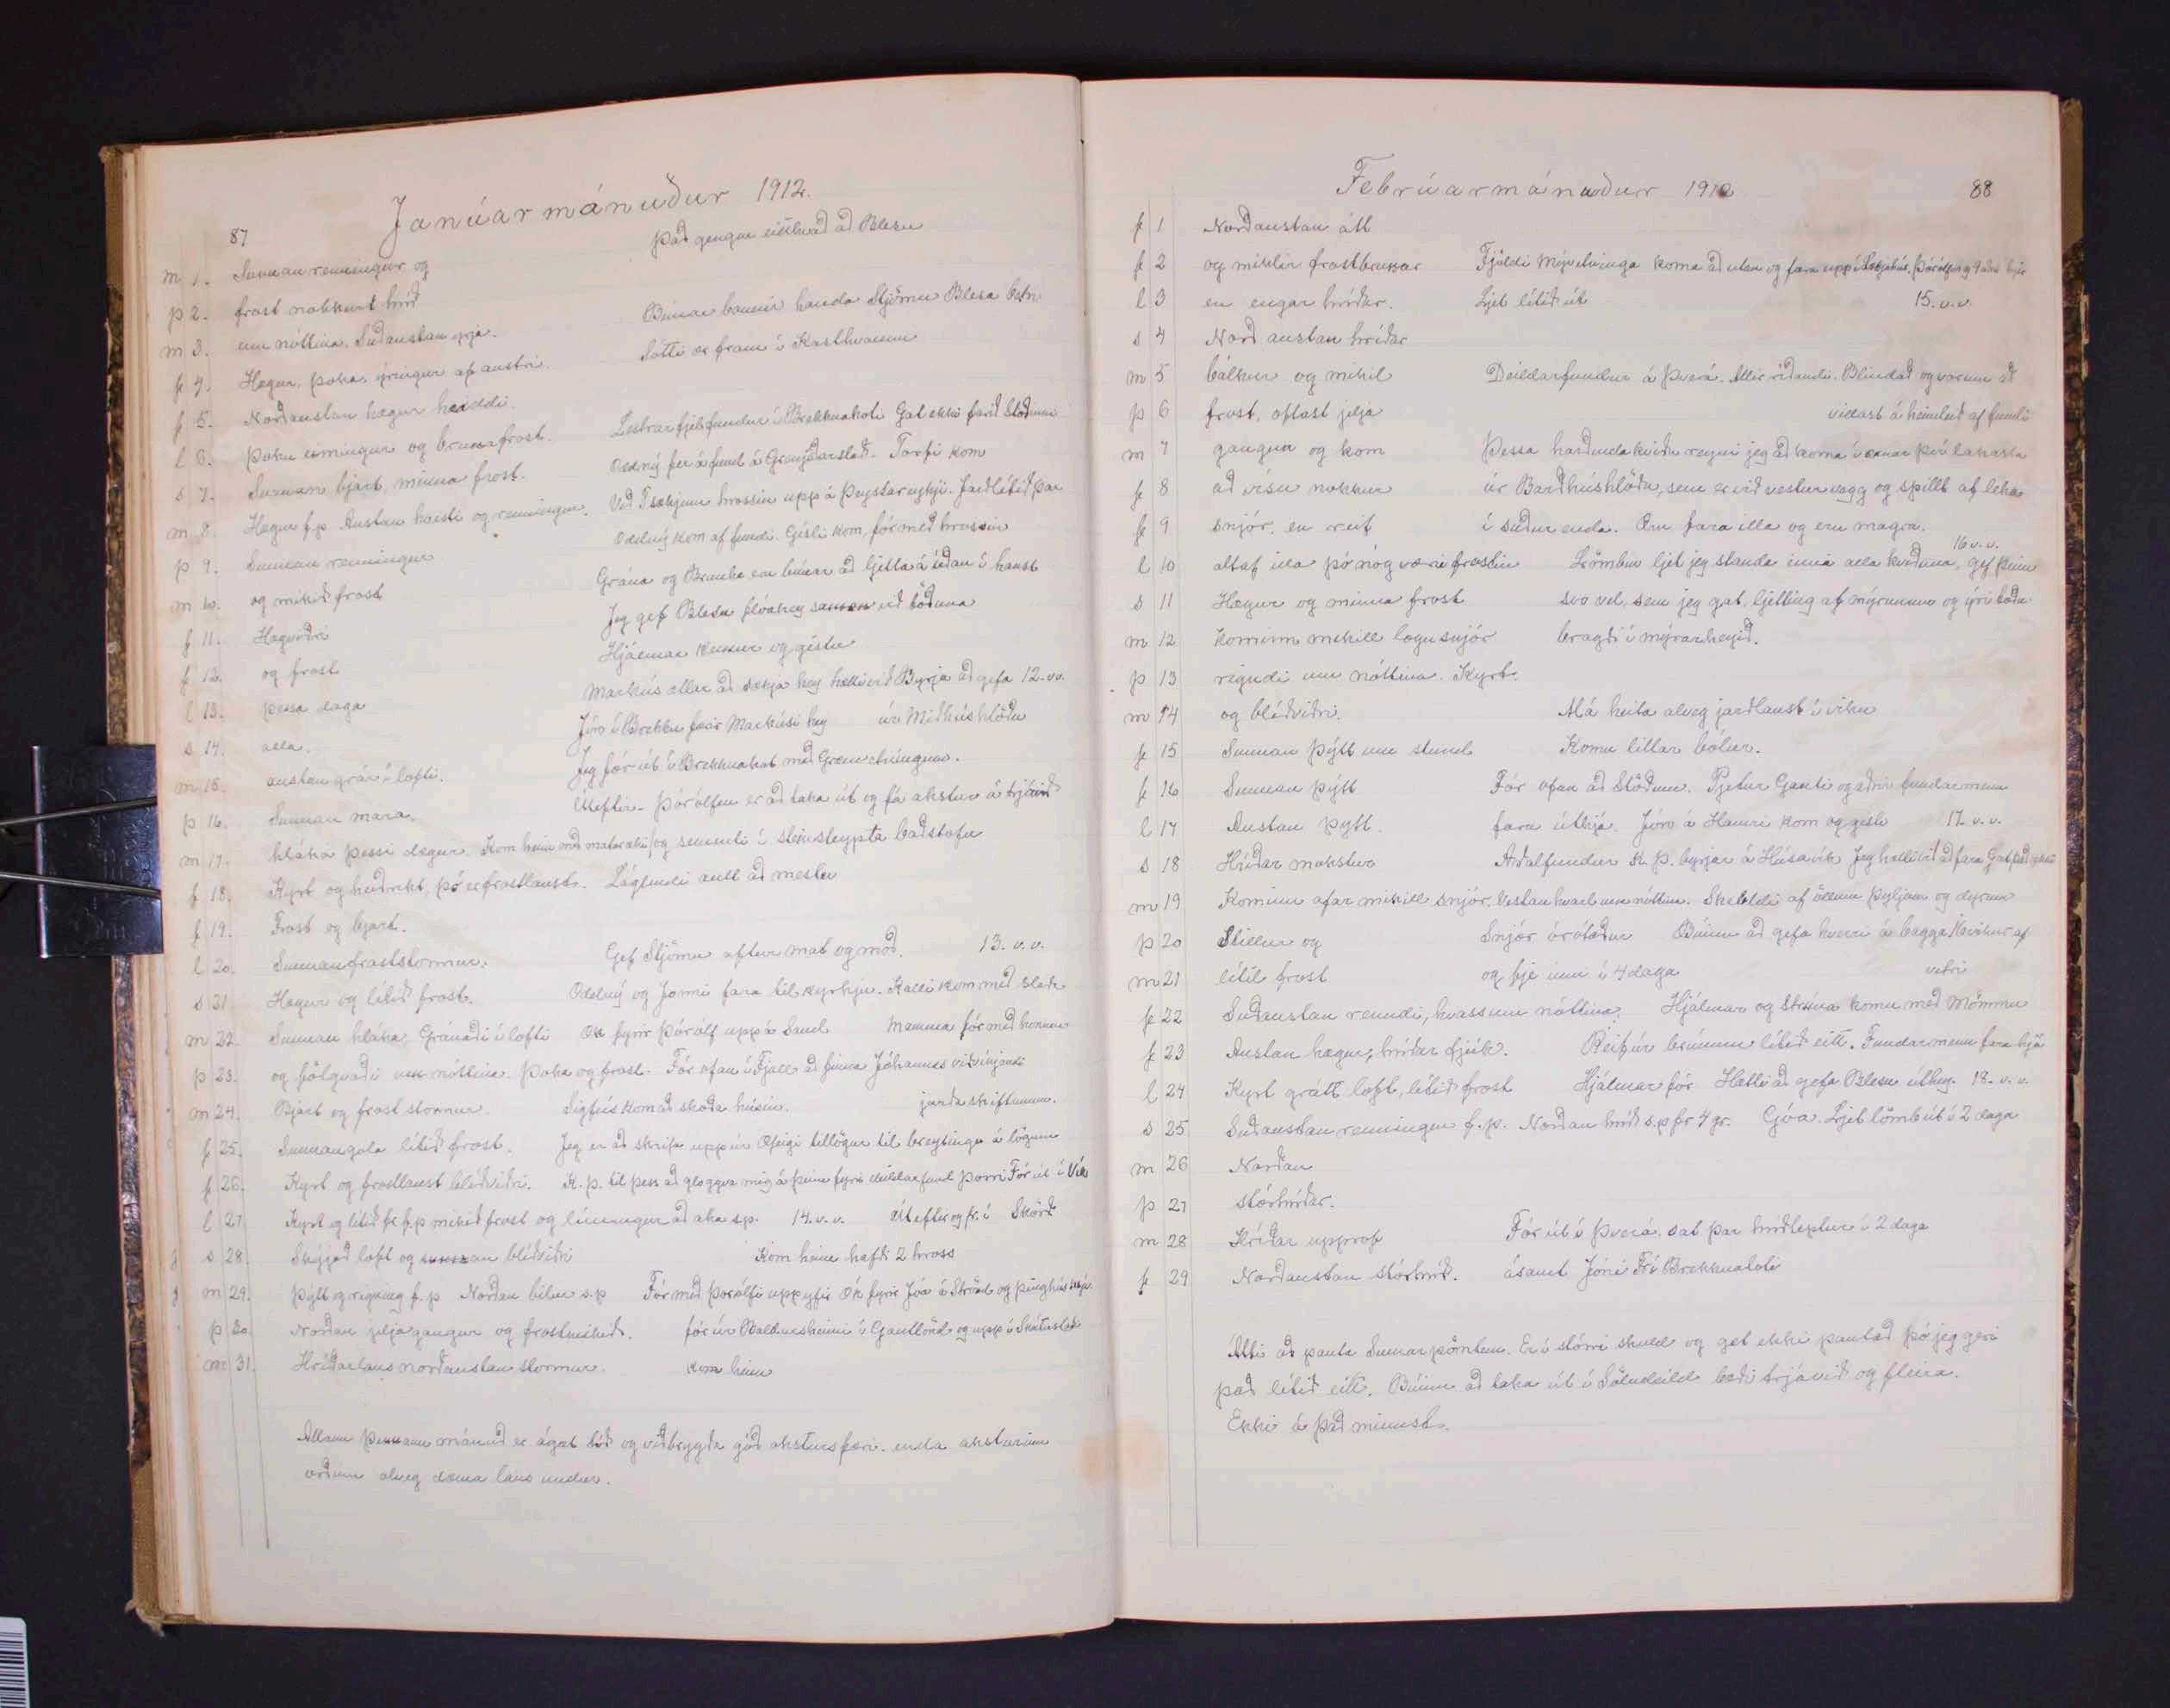 Janúarmánuður 1912.
87
Það gengur eitthvað að Blesu
m 1. Sunnan renningur og
þ 2. frost nokkurt hríð
m 3. um nóttina. Suðaustan grja.
Búinn handa Stjörnu Blesa
f 4. Hægur, þoka, ýringur af austri.
Sótti er fram í Kasthvamm
f 5. Norðaustan hægur heiddi.
l 6. Þoku eimingur og bruna frost.
Lestrarfjel.fundur í Brekknakoti Gat ekki farið
s 7. Sunnan bjart, minna frost.
Oddný fer á fund á Grenjaðarstað. Torfi kom
m 8. Hægur f.p. Austan hvesti og renningur.
Við T sækjum hrossin upp á Þeystareykji. Jarðlítið þar
þ 9. Sunnan renningur
Oddný kom af fundi. Gísli kom, fór með hrossin
m 10. og mikið frost
Grána og Brunka eru búnar að ljetta á töðan í haust
f 11. Hægviðri
Jeg gef Blesu flóahey saman við töðuna
f 12. og frost
Hjálmar kemur og gistir
l 13. þessa daga
Markús ætlar að sækja hey hætti við Byrja að gefa 12. v.v.
s 14. alla.
Jón í Brekku fær Markúsi hey úr Miðhúshlöðu
m 15. austan gráð í lofti.
Jeg fór út í Brekknakot með
þ 16. Sunnan mara.
Þórólfur er að taka út og fá akstur á trjávið
m 17. hláka þessi dægur. Kom heim með og sementi í steinsteypta baðstofu
f 18. Kyrt og heiðríkt, þó er frostlaust. Láglendi autt að mestu
f 19. Frost og bjart.
l 20. Sunnanfroststormur. Gef Stjörnu aftur mat og moð. 13. v.v.
s 21. Hægur og lítið frost. Oddný og Jonni fara til kyrkju. Kalli kom með sleða
m 22. Sunnan hláka. Gránaði í lofti Ók fyrir Þórólf upp á Sand Mamma fór með honum
þ 23. og fölgvaði um nóttina. Þoka og frost. Fór ofan í Fjall að finna Jóhannes
m 24. Bjart og frost stormur. Sigfús kom að skoða húsin. jarðaskiftunum.
f 25. Sunnangola lítið frost. Jeg er að skrifa upp úr Ófeigi tillögur til breytinga á lögum
f 26. Kyrt og frostlaust blíðviðri. K.Þ. til þess að gloggva mig á þeim fyrir deildarfund Þorri Fór út í Vík
l 27 Kyrt og lítið fr f.p mikið frost og límingur að aka s.p. 14. v.v. út eftir og fr. í Skörð
s 28. Skýjað loft og sunnan blíðviðri Kom heim hafði 2 hross
m 29. Þýtt og rigning f.p Norðan bilur s.p Fór með Þórólfi uppyfir Ók fyrir Jóa á Strönd og þinghús
þ 30. Norðan jeljagangur og frostmikið. fór úr Baldursheimi í Gautlönd og upp í Skútustaði
m 31. Hríðarlaus norðaustan stormur. kom heim
Allann þennann mánuð er ágæt tíð og viðbrygða góð akstursfæri. enda aksturinn
orðinn alveg dæma laus undur.
Febrúarmánuður 1912
88
f 1 Norðaustan átt
f 2 og miklir frostbrunar Fjöldi Mývetninga koma að utan og fara upp í Þórólfur
l 3 en engar hríðar. Ljet lítið út 15. v.v.
s 4 Norð austan hríðar
m 5 bálkur og mikil Deildarfundur á Þverá. Allir ríðandi. Blindað og vorum að
þ 6 frost, oftast jelja villast á heimleið af fundi
m 7 gangur og kom Þessa harðindakviðu reyni jeg að koma í ærnar því lakasta
f 8 að vísu nokkur úr Barðhúshlöðu, sem er við vestur vegg og spillt af leka
f 9 snjór, en reif í suður enda. Ærn fara illa og eru magra.
l 10 altaf illa þó nóg væri frostin Lömbin ljet jeg standa inni alla kviðuna, gef þeim 16 v.v.
s 11 Hægur og minna frost svo vel, sem jeg gat, ljetting af mýrunum og íri töðu
m 12 kominn mikill logn snjór bragði í mýrarheyið.
þ 13 rigndi um nóttina. Kyrt.
m 14 og blíðviðri. Má heita alveg jarðlaust í viku
f 15 Sunnan þýtt um stund Komu litlar bólur.
f 16 Sunnan þýtt Fór ofan að Stöðum. Pjetur Gauti og aðrir fundarmenn
l 17 Austan þýtt. fara úthjá. Jón á Hamri kom og gisti 17. v.v.
s 18 Hríðar mokstur Aðalfundur K.Þ. byrjar á Húsavík Jeg hætti við að fara
m 19 Kominn afar mikill snjór. Vestan hvarf um nóttina. Skelldi af öllum þyljum og dyrum
þ 20 Stillur og Snjór óróðaður Búinn að gefa hverri á bagga Kvikur af
m 21 lítil frost og fje inni í 4 daga vetri
f 22 Suðaustan renndi, hvass um nóttina. Hjálmar og Stína komu með Mömmu
f 23 Austan hægur, hríðar fjúk. Reif úr brúnum lítið eitt. Fundarmenn fara hjá
l 24 Kyrt grátt loft, lítið frost Hjálmar fór Hætti að gefa Blesu úthey. 18. v.v.
s 25 Suðaustan renningur f.p. Norðan hríð s.p fr 4 gr. Góa. Ljet lömb út í 2 daga
m 26 Norðan
þ 27 stórhríðar.
m 28 Hríðar upprof Fór út í Þverá, sat þar hríðteptur í 2 daga
f 29 Norðaustan stórhríð. ásamt Jóni Fr í Brekknakoti
Átti að panta Sumarpöntun. Er í stórri skuld og get ekki pantað þó jeg geri
það lítið eitt. Búinn að taka út í Söludeild bæði trjávið og fleira.
Ekki á það minnst.